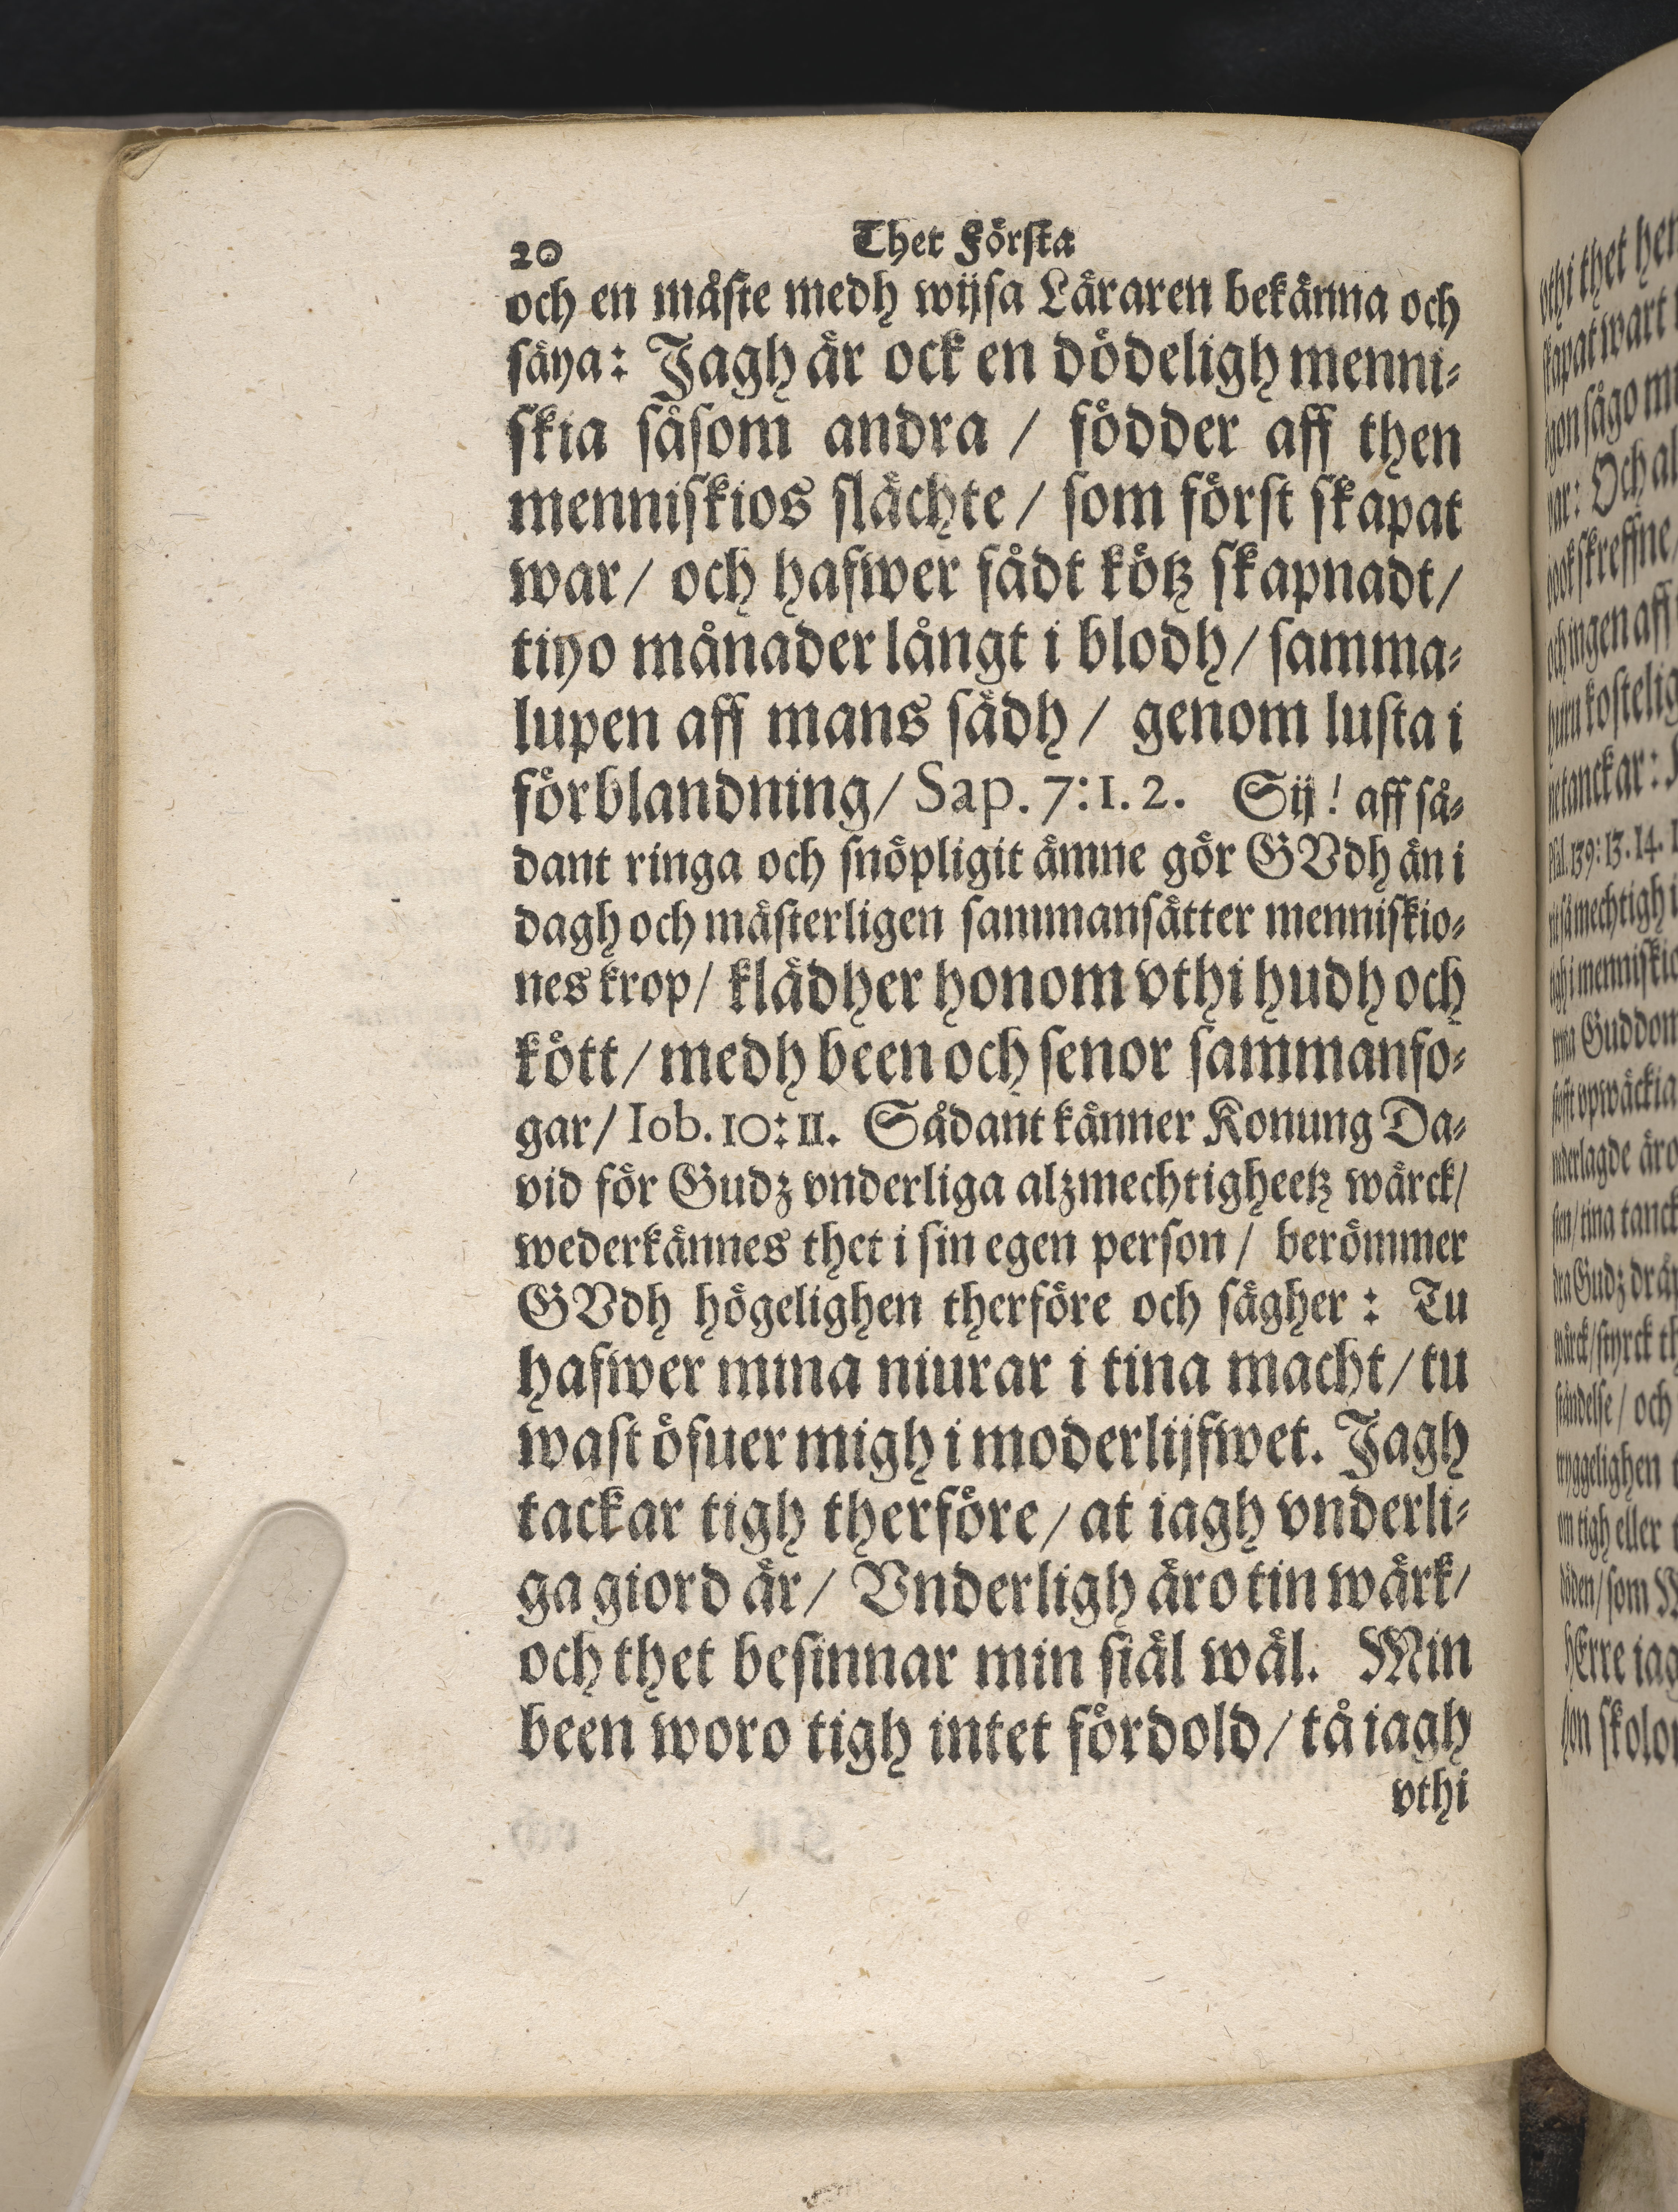 20 Thet Första
och en måste medh wijsa Läraren bekänna och
säya: Jagh är ock en dödeligh menni-
skia såsom andra / födder aff then
menniskios slächte / som först skapat
war / och hafwer fådt kötz skapnadt /
tiyo månader långt i blodh / samma-
lupen aff mans sädh / genom lusta i
förblandning / Sap. 7:1.2. Sij! aff så-
dant ringa och snöpligit ämne gör GVdh än i
dagh och mästerligen sammansätter menniskio-
nes krop / klädher honom vthi hudh och
kött / medh been och senor sammanfo-
gar / Iob. 10:11. Sådant känner Konung Da-
vid för Gudz vnderliga alzmechtigheetz wärck /
wederkännes thet i sin egen person / berömmer
GVdh högelighen therföre och sägher: Tu
hafwer mina niurar i tina macht / tu
wast öfuer migh i moderlijfwet. Jagh
tackar tigh therföre / at iagh vnderli-
ga giord är / Vnderligh äro tin wärk /
och thet besinnar min siäl wäl. Min
been woro tigh intet fördold / tå iagh
vthi